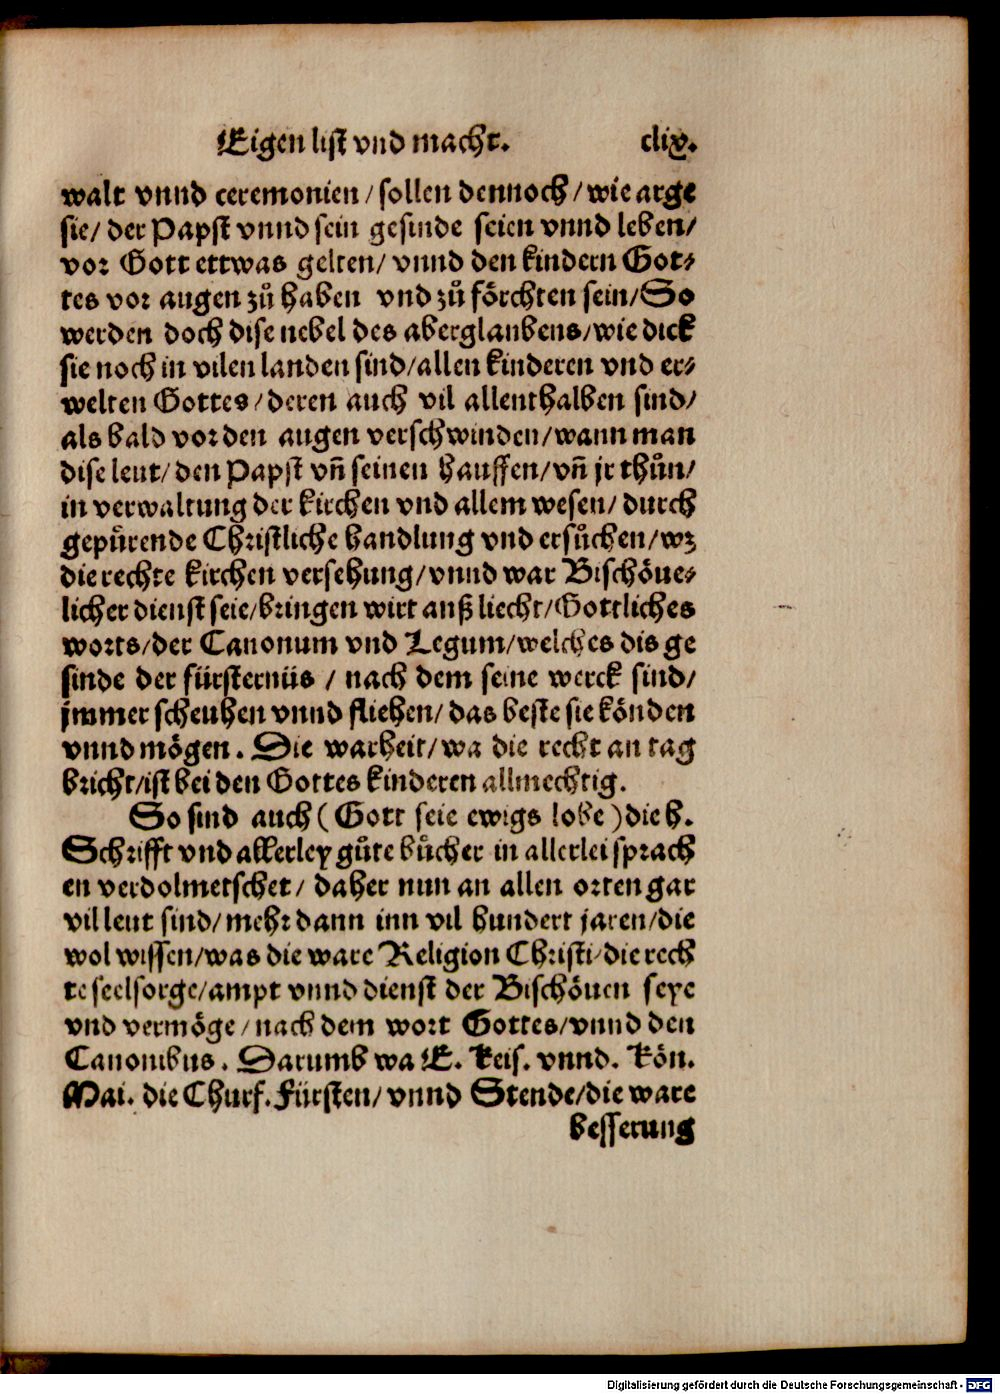 Eigen list vnd macht. clix.
walt vnnd ceremonien / sollen dennoch / wie arge
sie / der Papst vnnd sein gesinde seien vnnd leben /
vor Gott ettwas gelten / vnnd den kindern Got⸗
tes vor augen zů haben vnd zů förchten sein / So
werden doch dise nebel des aberglaubens / wie dick
sie noch in vilen landen sind / allen kinderen vnd er⸗
welten Gottes / deren auch vil allenthalben sind /
als bald vor den augen verschwinden / wann man
dise leut / den Papst vñ seinen hauffen / vñ jr thůn /
in verwaltung der kirchen vnd allem wesen / durch
gepürende Christliche handlung vnd ersůchen / wz
die rechte kirchen versehung / vnnd war Bischöue⸗
licher dienst seie / bringen wirt anß liecht / Gottliches
worts / der Canonum vnd Legum / welches dis ge
sinde der fürsternüs / nach dem seine werck sind /
jmmer scheuhen vnnd fliehen / das beste sie könden
vnnd mögen. Die warheit / wa die recht an tag
bricht / ist bei den Gottes kinderen allmechtig.
So sind auch ( Gott seie ewigs lobe ) die h.
Schrifft vnd allerley gůte bücher in allerlei sprach
en verdolmetschet / daher nun an allen orten gar
vil leut sind / mehr dann inn vil hundert jaren / die
wol wissen / was die ware Religion Christi / die rech
te seelsorge / ampt vnnd dienst der Bischöuen seye
vnd vermöge / nach dem wort Gottes / vnnd den
Canonibus. Darumb wa E. Keis. vnnd. Kön.
Mai. die Churf. Fürsten / vnnd Stende / die ware
besserung
Digitalisierung gefördert durch die Deutsche Forschungsgemeinschaft - DFG